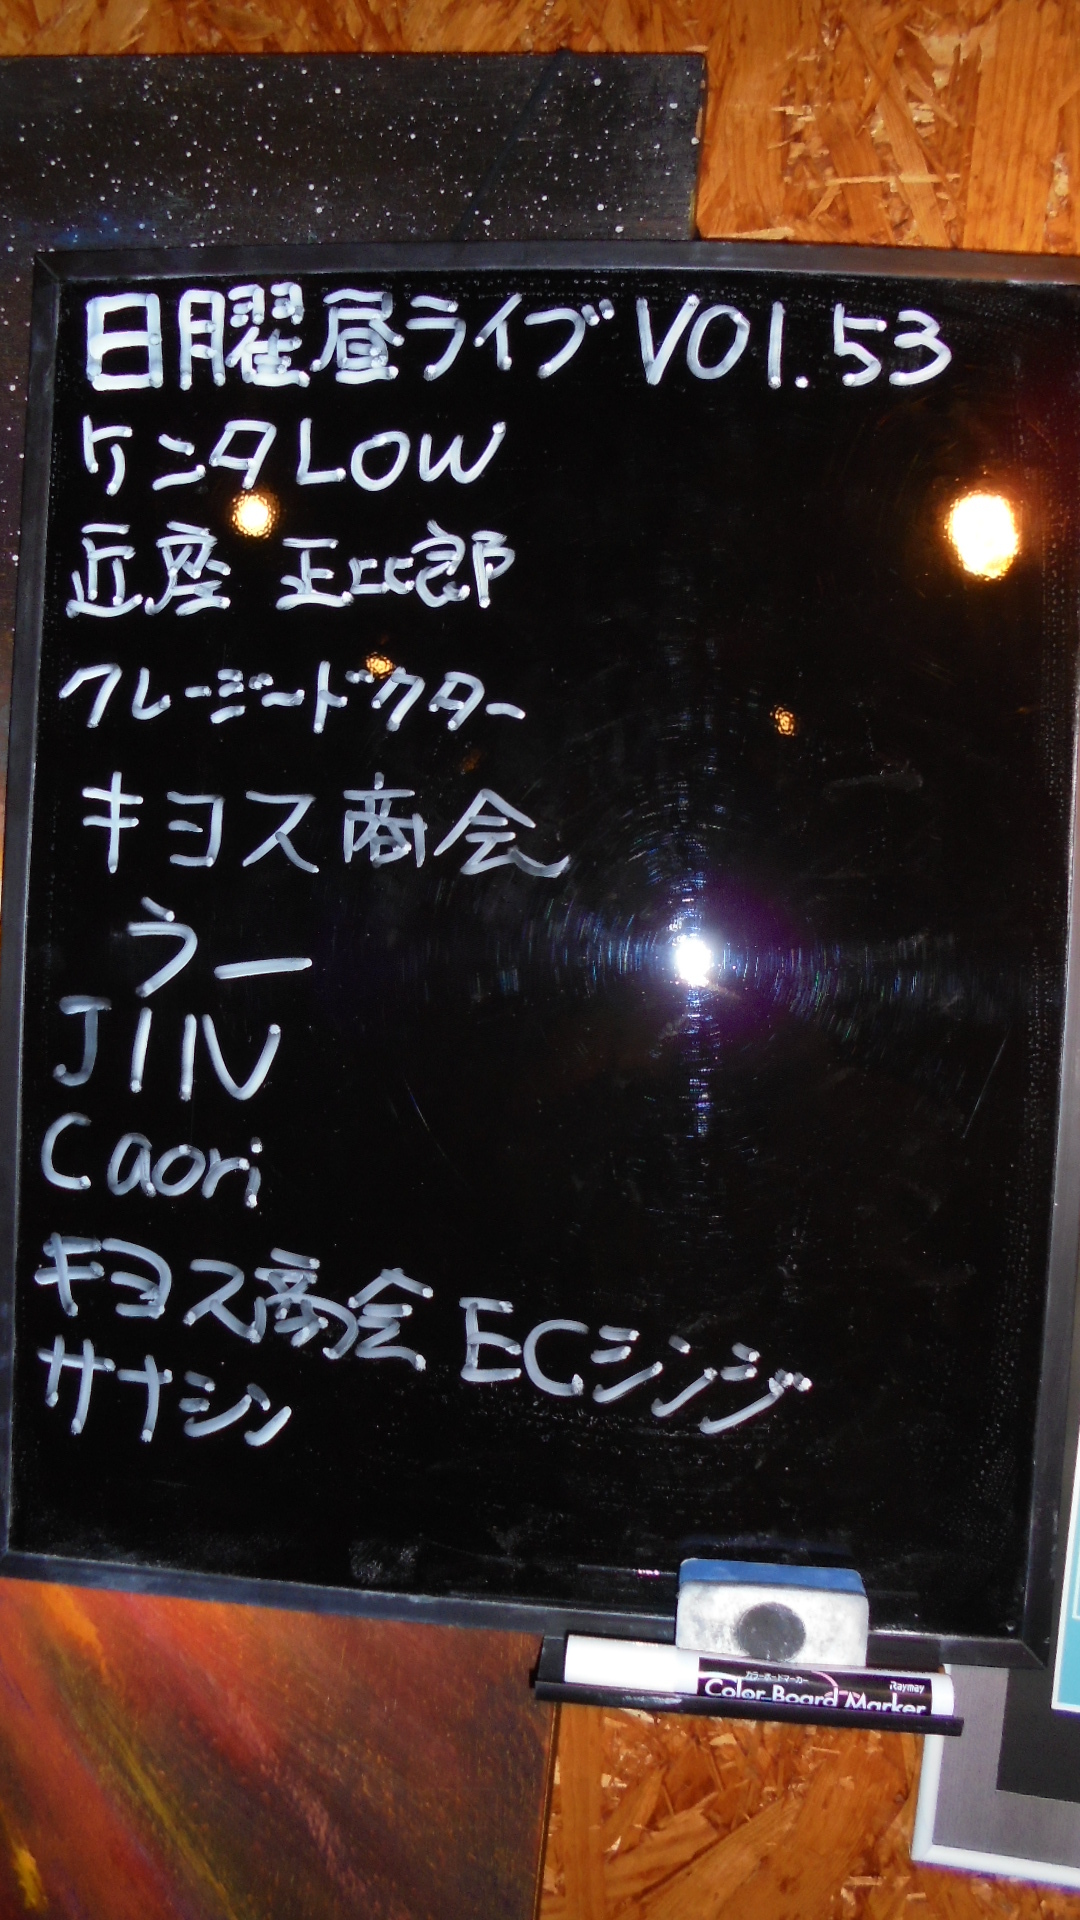 日曜昼ライブ VOl.53
ケンタLOW
近座 正比郎
クレージードクター
キヨス商会
うー
JIN
Caori
キヨス商会 ECシンジ
サナシン
カラーボードマーカー
Raymay
Color Board Marker